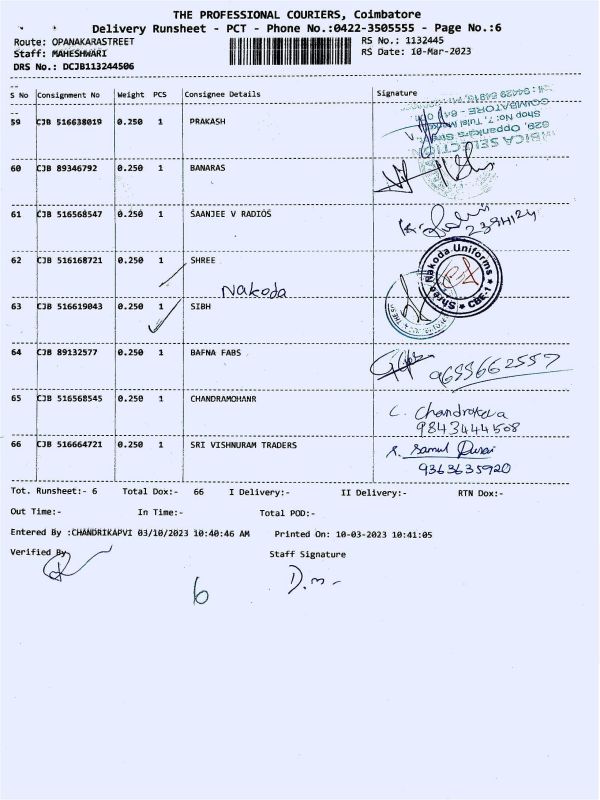 THE PROFESSIONAL COURIERS, Coimbatore
Delivery Runsheet - PCT - Phone No.:0422-3505555 - Page No.:6
Route: OPANAKARASTREET RS No.: 1132445
Staff: MAHESHWARI RS Date: 10-Mar-2023
DRS No.: DCJB113244506
S No Consignment No Weight PCS Consignee Details Signature
59 CJB 516638019 0.250 1 PRAKASH
60 CJB 89346792 0.250 1 BANARAS
61 CJB 516568547 0.250 1 SAANJEE V RADIOS
2394124
62 CJB 516168721 0.250 1 SHREE
Nakoda
Shree Nakoda Uniforms * CBE-1 *
63 CJB 516619043 0.250 1 SIBH
64 CJB 89132577 0.250 1 BAFNA FABS
9655662557
65 CJB 516568545 0.250 1 CHANDRAMOHANR
C. Chandrakala
9843444508
66 CJB 516664721 0.250 1 SRI VISHNURAM TRADERS
S. Samul Durai
9363635920
Tot. Runsheet:- 6 Total Dox:- 66 I Delivery:- II Delivery:- RTN Dox:-
Out Time:- In Time:- Total POD:-
Entered By :CHANDRIKAPVI 03/10/2023 10:40:46 AM Printed On: 10-03-2023 10:41:05
Verified By Staff Signature
D.m-
6